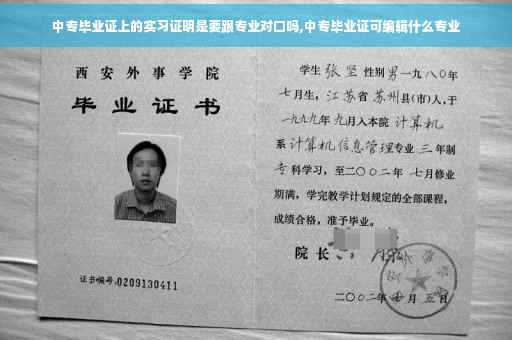 中专毕业证上的实习证明是要跟专业对口吗,中专毕业证可编辑什么专业
西安外事学院
毕业证书
证书编号:0209130411
学生 张坚 性别 男 一九八〇年
七月生，江苏省 苏州县(市)人，于
一九九九年 九月入本院 计算机
系 计算机信息管理专业 三 年制
专科学习，至二〇〇二年 七月修业
期满，学完教学计划规定的全部课程，
成绩合格，准予毕业。
院长
二〇〇二年 月 五日